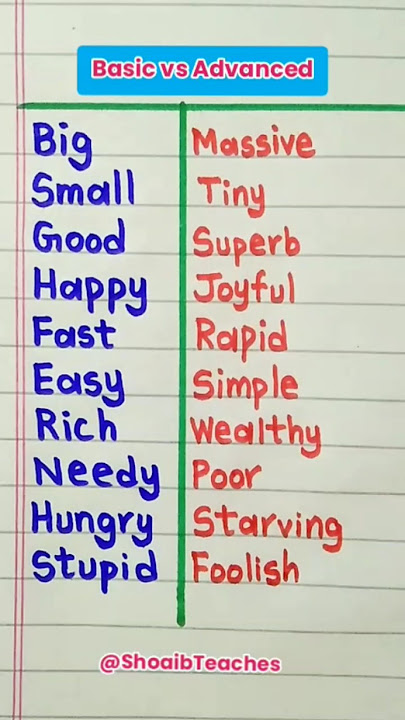 Basic vs Advanced
Big Massive
Small Tiny
Good Superb
Happy Joyful
Fast Rapid
Easy Simple
Rich Wealthy
Needy Poor
Hungry Starving
Stupid Foolish
@ShoaibTeaches